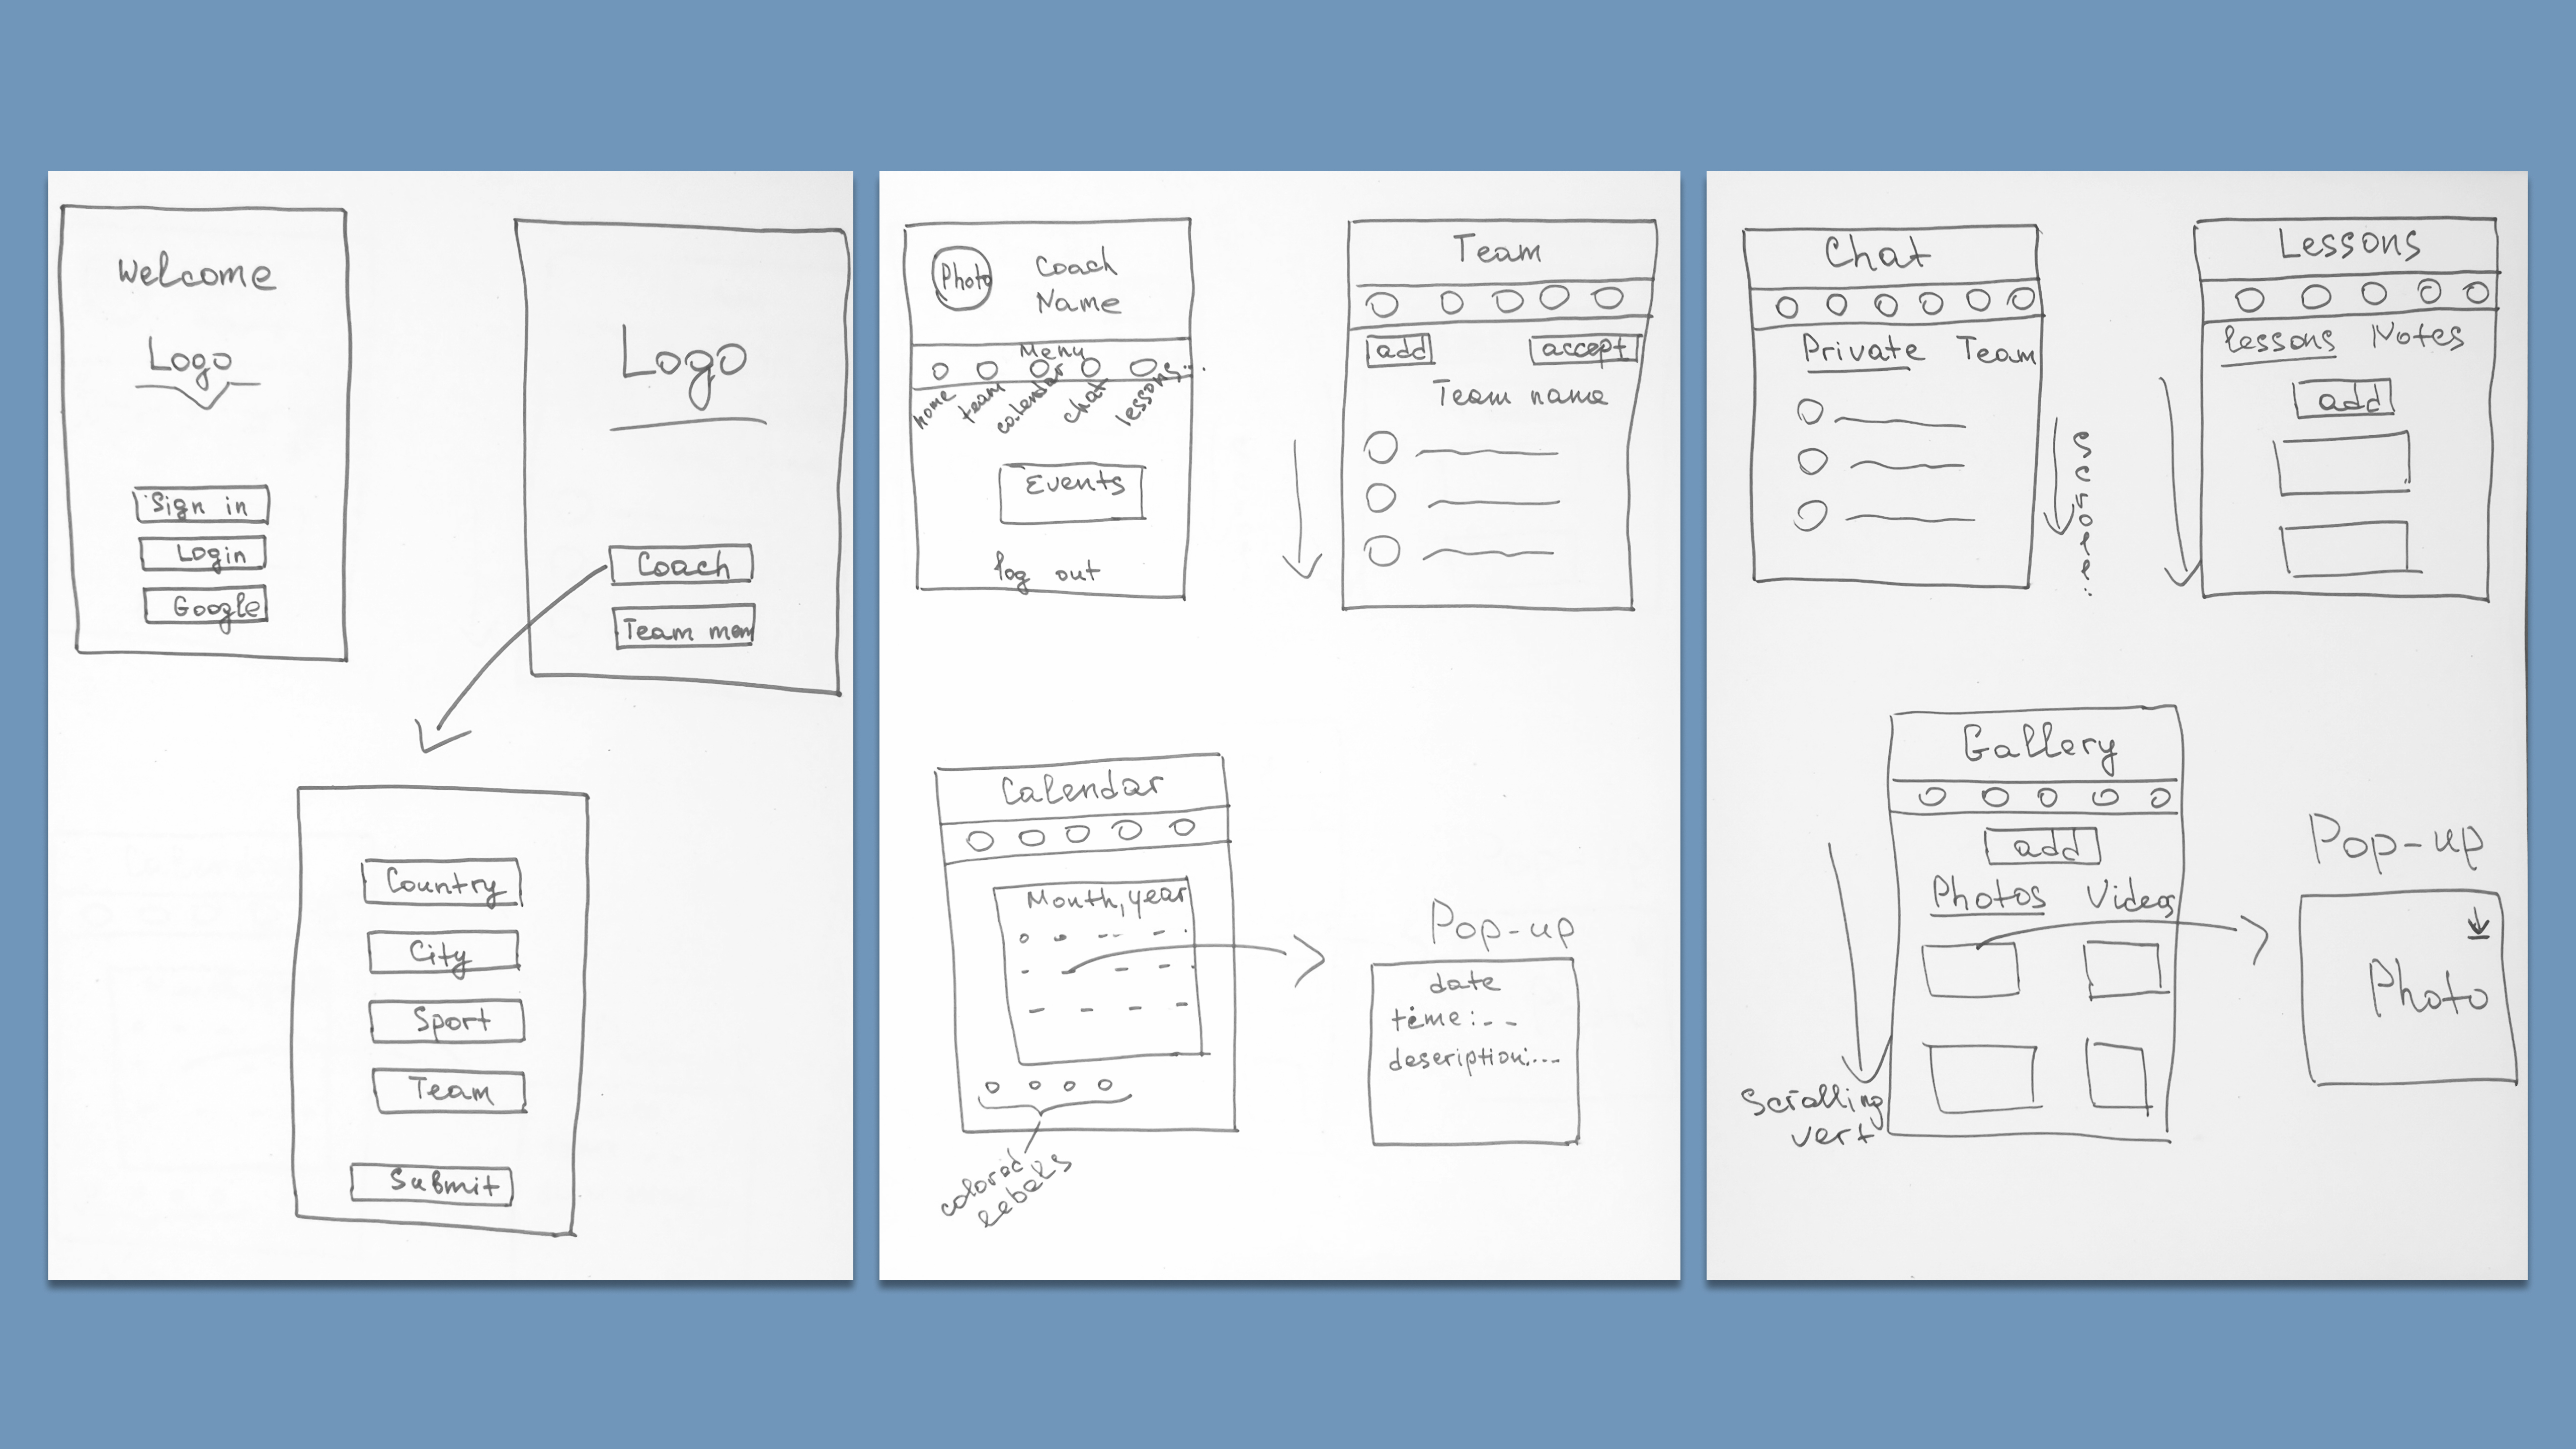 Welcome
Logo
Sign in
Login
Google
Logo
Coach
Team mem
Country
City
Sport
Team
Submit
Photo
Coach
Name
Menu
home
team
calendar
chat
lessons...
Events
log out
Team
add
accept
Team name
Calendar
Month, year
colored
lebels
Pop-up
date
time:--
description:---
Chat
Private Team
Scroll
Lessons
lessons Notes
add
Gallery
add
Photos Videos
Scrolling
vert
Pop-up
Photo